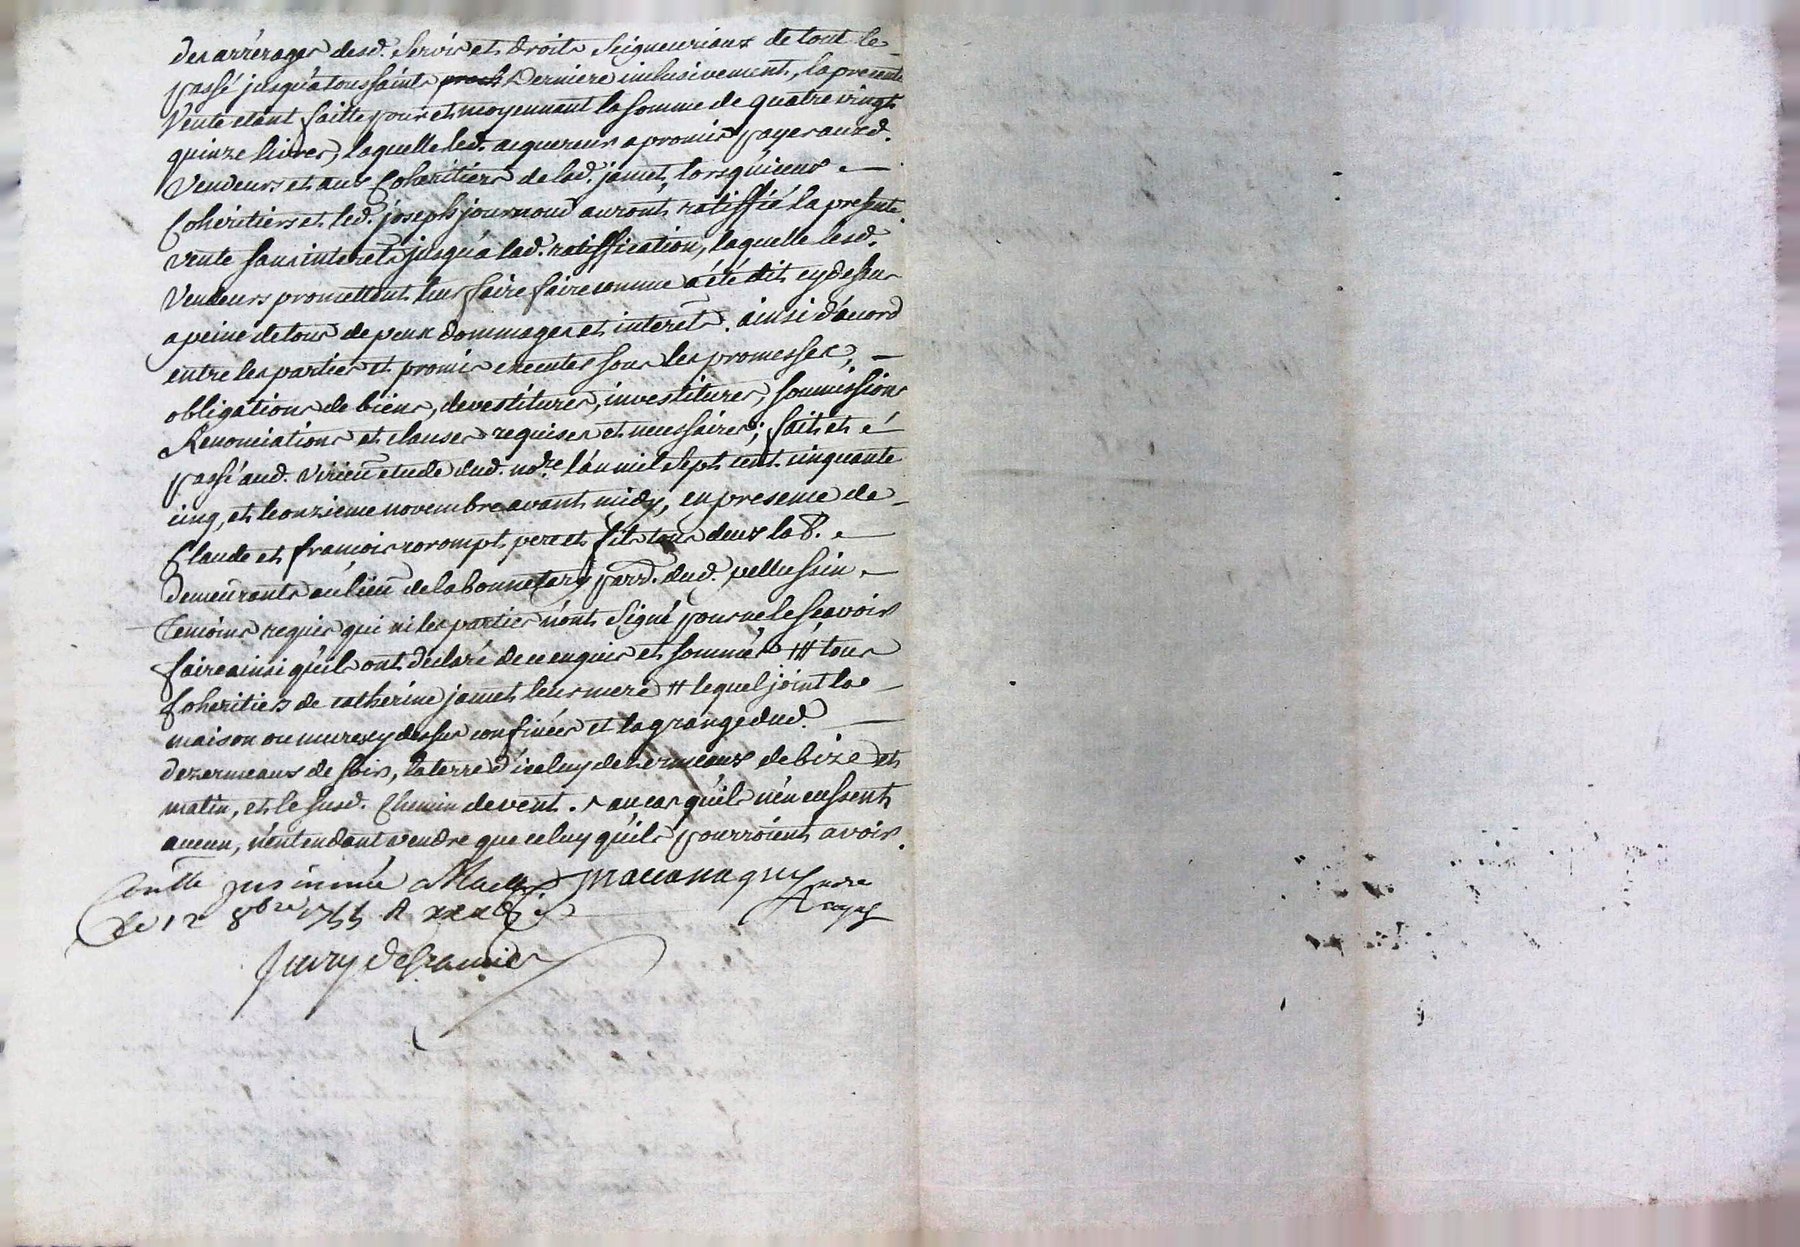 des arrérages desd. servis et droits seigneuriaux de tout le
passé jusqu'a toussaints derniere inclusivement, la presente
vente etant faitte pour et moyennant la somme de quatre vingt
quinze livres, laquelle led. acquereur a promis payer auxd.
vendeurs et aux cohéritiers de lad. jamet, lorsqu'iceux
cohéritiers et led. joseph journoud auront ratiffié la presente
vente sans interets jusqu'a lad. ratiffication, laquelle lesd.
vendeurs promettent leur faire faire comme a été dit cy dessus
a peine de tous depens dommages et interets. ainsi d'acord
entre les parties et promis executer sous les promesses,
obligations de biens, devestitures, investitures, soumissions
Renonciations et clauses requises et necessaires; fait et
passé aud. virieu etude dud. nore. l'an mil sept cent cinquante
cinq, et le onzieme novembre avant midy, en presence de
Claude et françois corompt pere et fils tous deux
demeurants au lieu de la bonnetary parr. dud. pellussin
temoins requis qui ni les parties n'ont signé pour ne le sçavoir
faire ainsi qu'ils ont declaré de ce enquis et sommés # tous
cohéritiers de catherine jamet leur mere # lequel joint la
maison ou mures cy dessus confinées et la grange dud.
dezermeaux de soir, la terre d'iceluy dezermeaux de bize et
matin, et le susd. chemin de vent. au cas qu'ils n'en eussent
aucun, n'entendant vendre que celuy qu'ils pourroient avoir.
nore
le 12 8bre 1755 R
royal